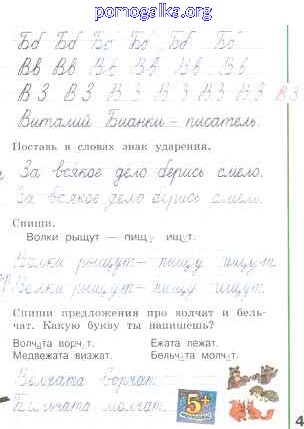 pomogalka.org
Бб Бб Бб Бб Бб Бб
Вв Вв Вв Вв Вв Вв
В З В З В З В З В З В З В З
Виталий Бианки – писатель.
Поставь в словах знак ударения.
За всякое дело берись смело.
За всякое дело берись смело.
Спиши.
Волки рыщут — пищу ищут.
Волки рыщут – пищу ищут.
Волки рыщут – пищу ищут.
Спиши предложения про волчат и бель-
чат. Какую букву ты напишешь?
Волчата ворчат. Ежата лежат.
Медвежата визжат. Бельчата молчат.
Волчата ворчат.
Бельчата молчат.
5+
4